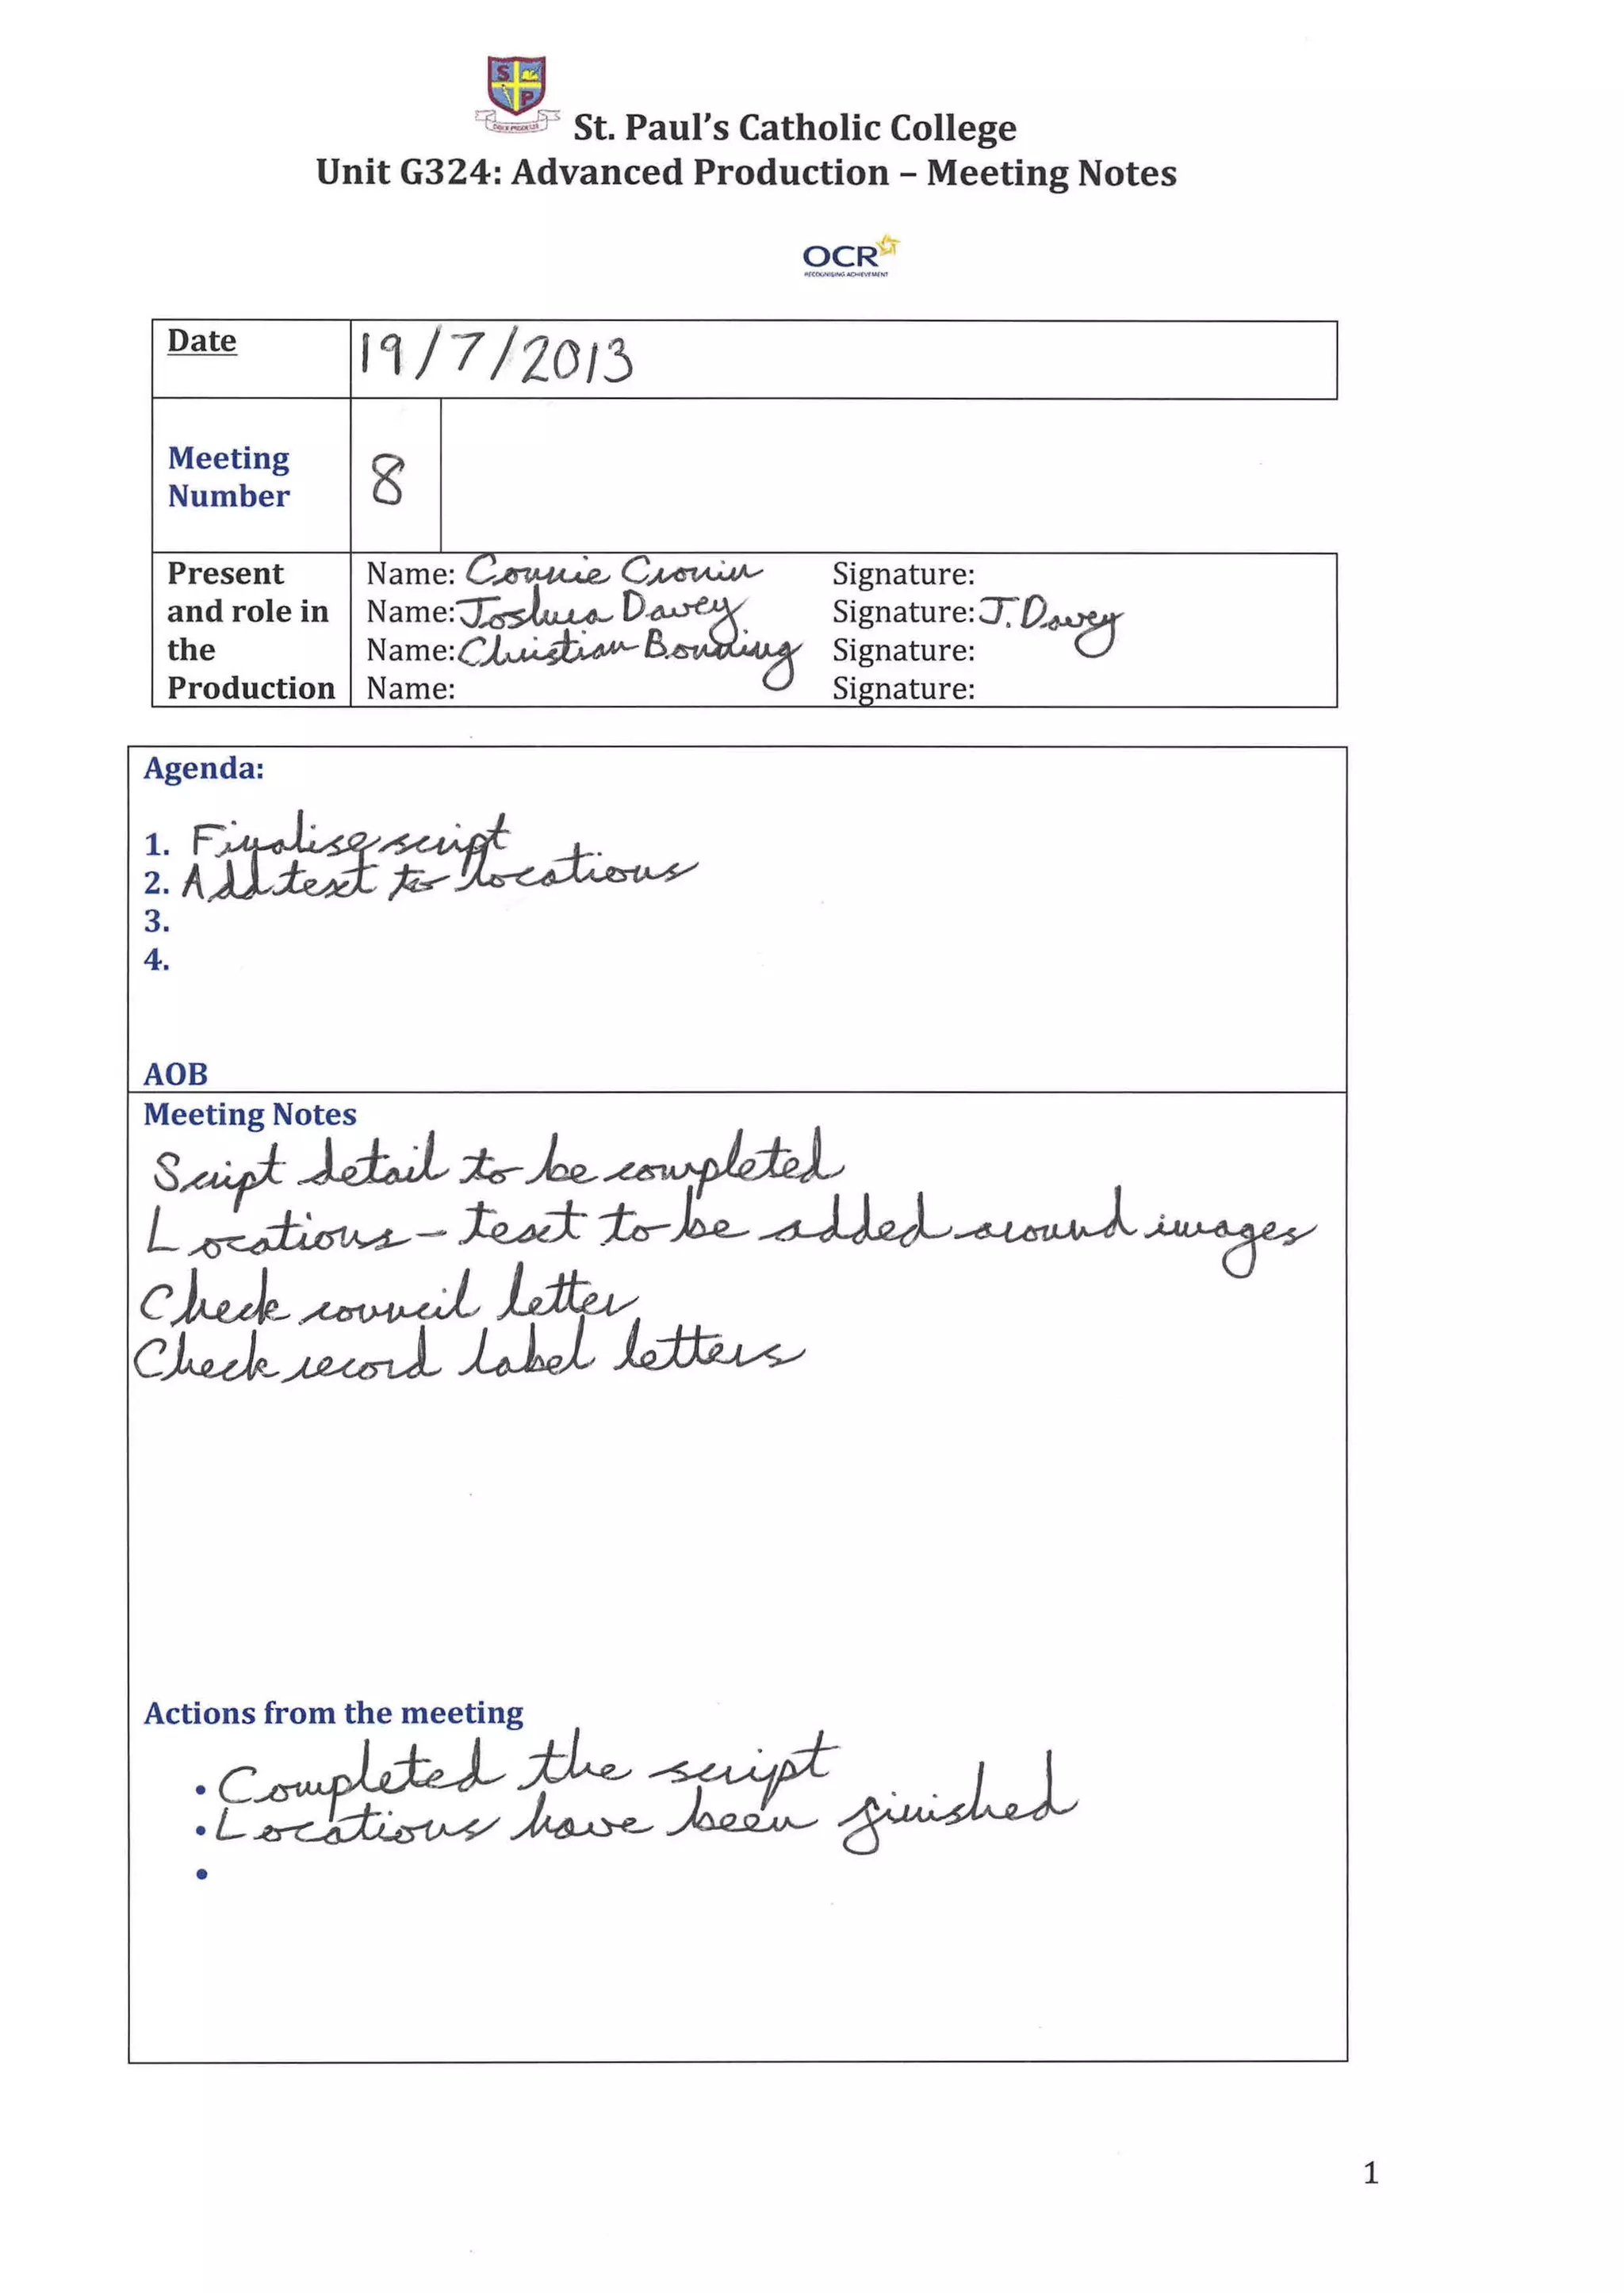 S P
St. Paul's Catholic College
Unit G324: Advanced Production – Meeting Notes
OCR
RECOGNISING ACHIEVEMENT
Date 19/7/2013
Meeting Number 8
Present and role in the Production
Name: Connie Cronin Signature:
Name: Joshua Davey Signature: J. Davey
Name: Christian Bonning Signature:
Name: Signature:
Agenda:
1. Finalise script
2. Add text to locations
3.
4.
AOB
Meeting Notes
Script detail to be completed
Locations - text to be added around images
Check council letter
Check record label letters
Actions from the meeting
• Completed the script
• Locations have been finished
•
1